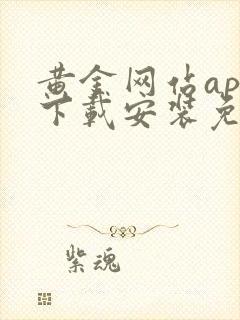 黄金网站ap
下载安装免
紫魂